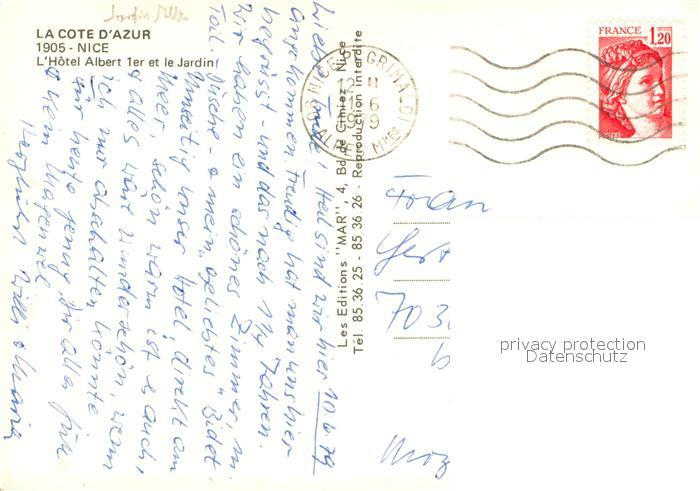 Jardin
LA COTE D'AZUR
1905 - NICE
L'Hôtel Albert 1er et le Jardin
10.6.79
Liebe Heil sind wir hier
angekommen. Freudig hat man uns hier
begrüsst - und das nach 1¼ Jahren.
Wir haben ein schönes Zimmer, m.
Toil. Dusche - + mein "geliebtes" Bidet.
Umseitig unser Hotel, direkt am
Meer, schön warm ist es auch,
+ alles wäre wunderschön, wenn
ich nur abschalten könnte
für heute genug. Dir alles
+ kein
Herzlichst Willi + Maria
Les Editions "MAR", 4, Bd de Cimiez, Nice
Tél. 85.36.25 - 85 36 26 - Reproduction interdite
NICE GRIMALDI
12 H
11 6
1979
ALPES MMES
FRANCE 1,20
POSTES
Frau
703
privacy protection
Datenschutz